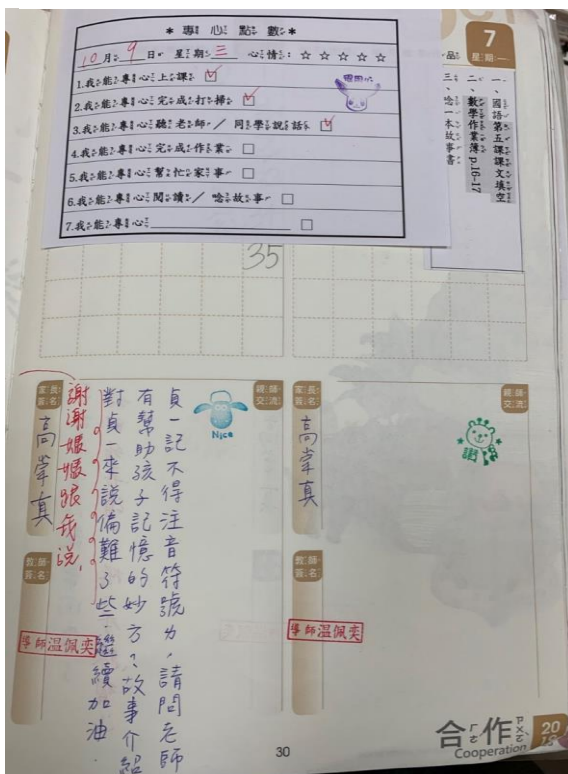 ＊專心點數＊
10月9日 星期三 心情：☆☆☆☆☆
1.我能專心上課 ☑
2.我能專心完成打掃 ☑
3.我能專心聽老師／同學說話 ☑
4.我能專心完成作業 □
5.我能專心幫忙家事 □
6.我能專心閱讀／唸故事 □
7.我能專心 □
7
星期一
一、國語第五課課文填空
二、數學作業簿p.16-17
三、唸一本故事書
35
親師交流
謝
家長簽名
高常真
教師簽名
導師温佩奕
親師交流
Nice
貞一記不得注音符號ㄌ，請問老師
有幫助孩子記憶的妙方？故事介紹
對貞一來說偏難了些，繼續加油．
謝謝媽媽跟我說，
家長簽名
高常真
教師簽名
導師温佩奕
30
合ㄏㄜˊ作ㄗㄨㄛˋ
Cooperation